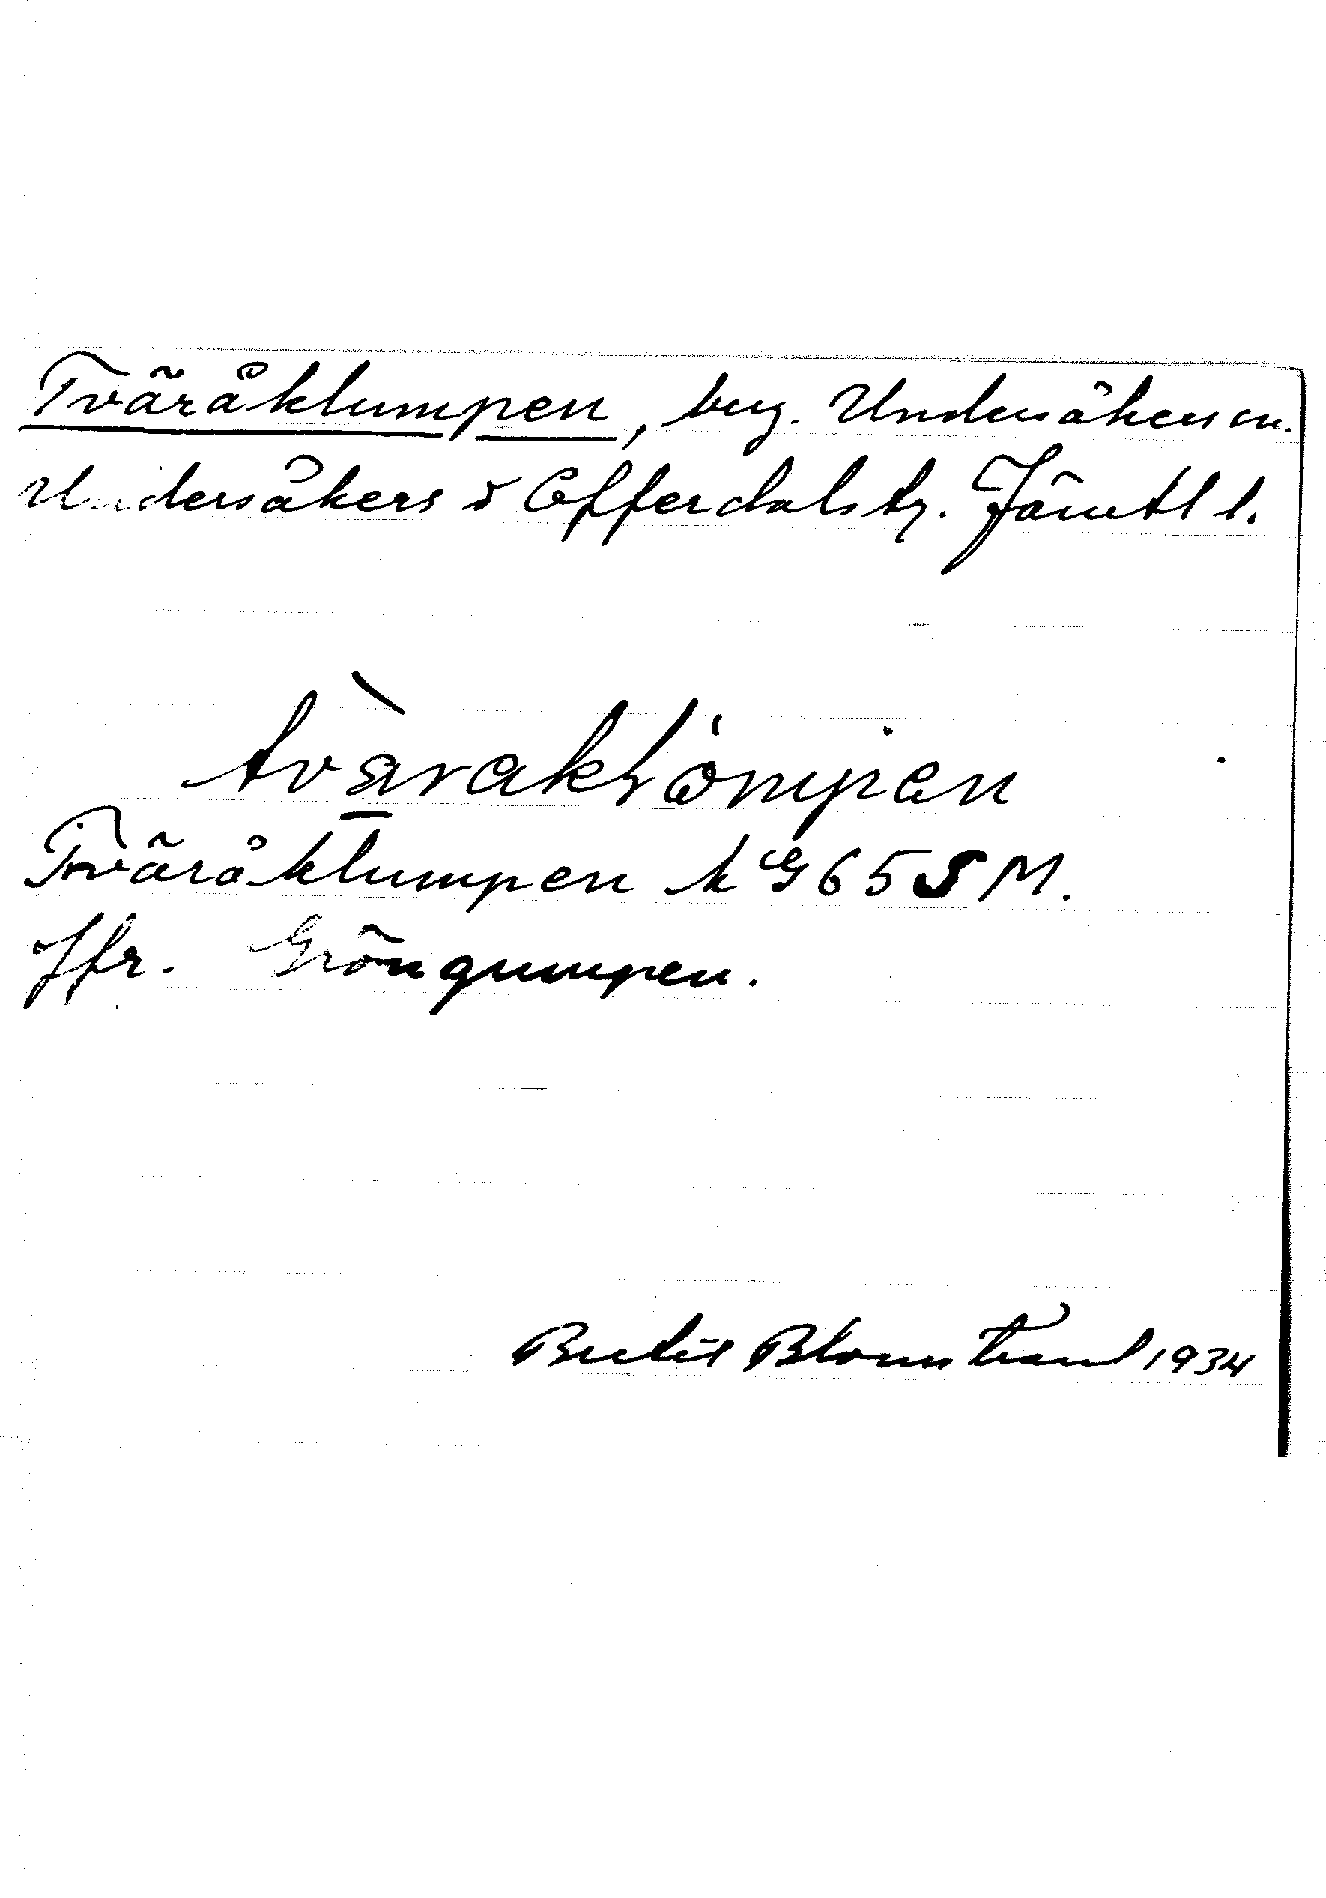 Tväråklumpen, berg. Undersåkers sn.
Undersåkers o Offerdals tg. Jämtl l.
tvàrakḷömpen
Tväråklumpen k G 65 S M.
Jfr. Gröngumpen.
Bertil Blomstrand 1934